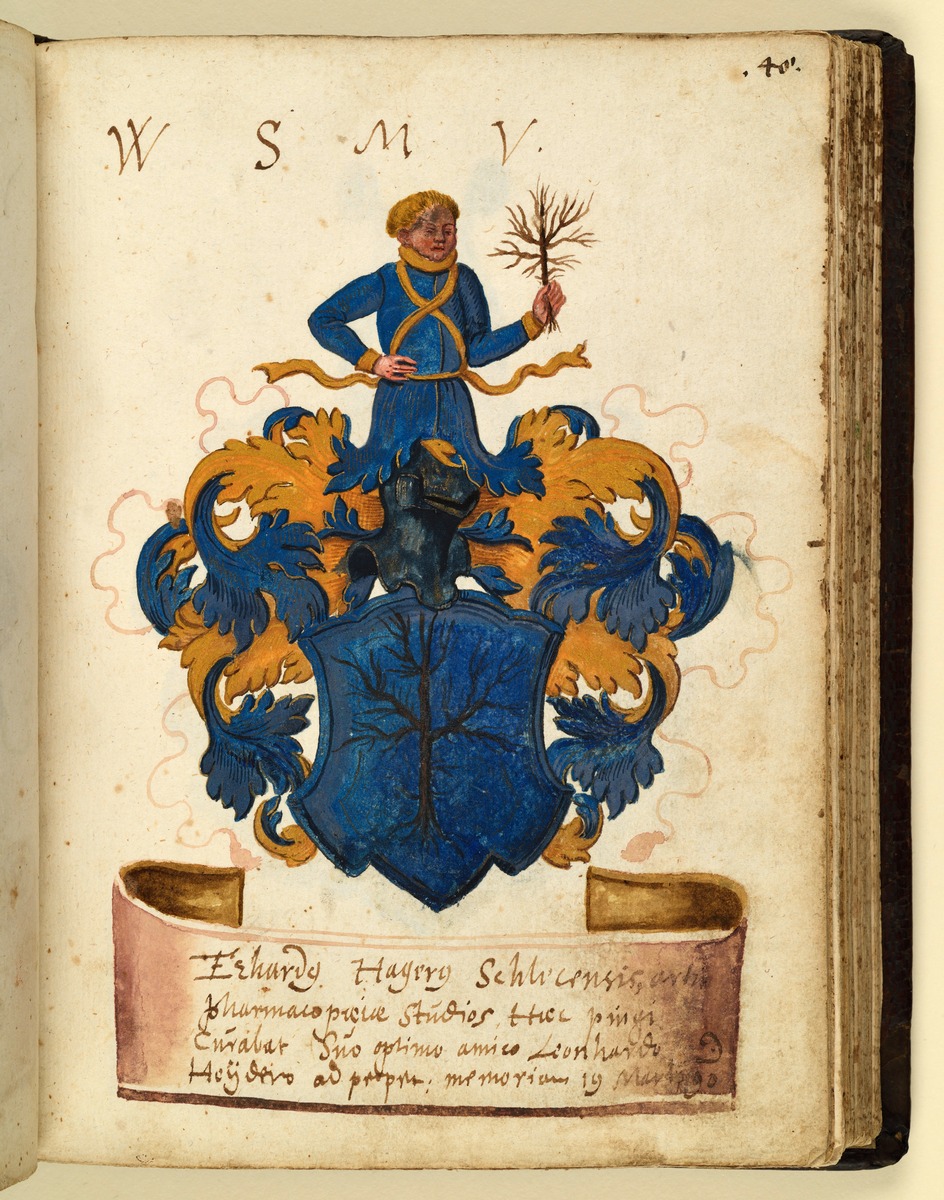 . 40.
W S M V.
Erhardg Hagerg Schlecensis, artis
pharmacopoeiae Studios, Haec pingi
Curabat Suo optimo amico Leonhardo D
Heÿdero ad perpet: memoriam 19 Martÿ 90